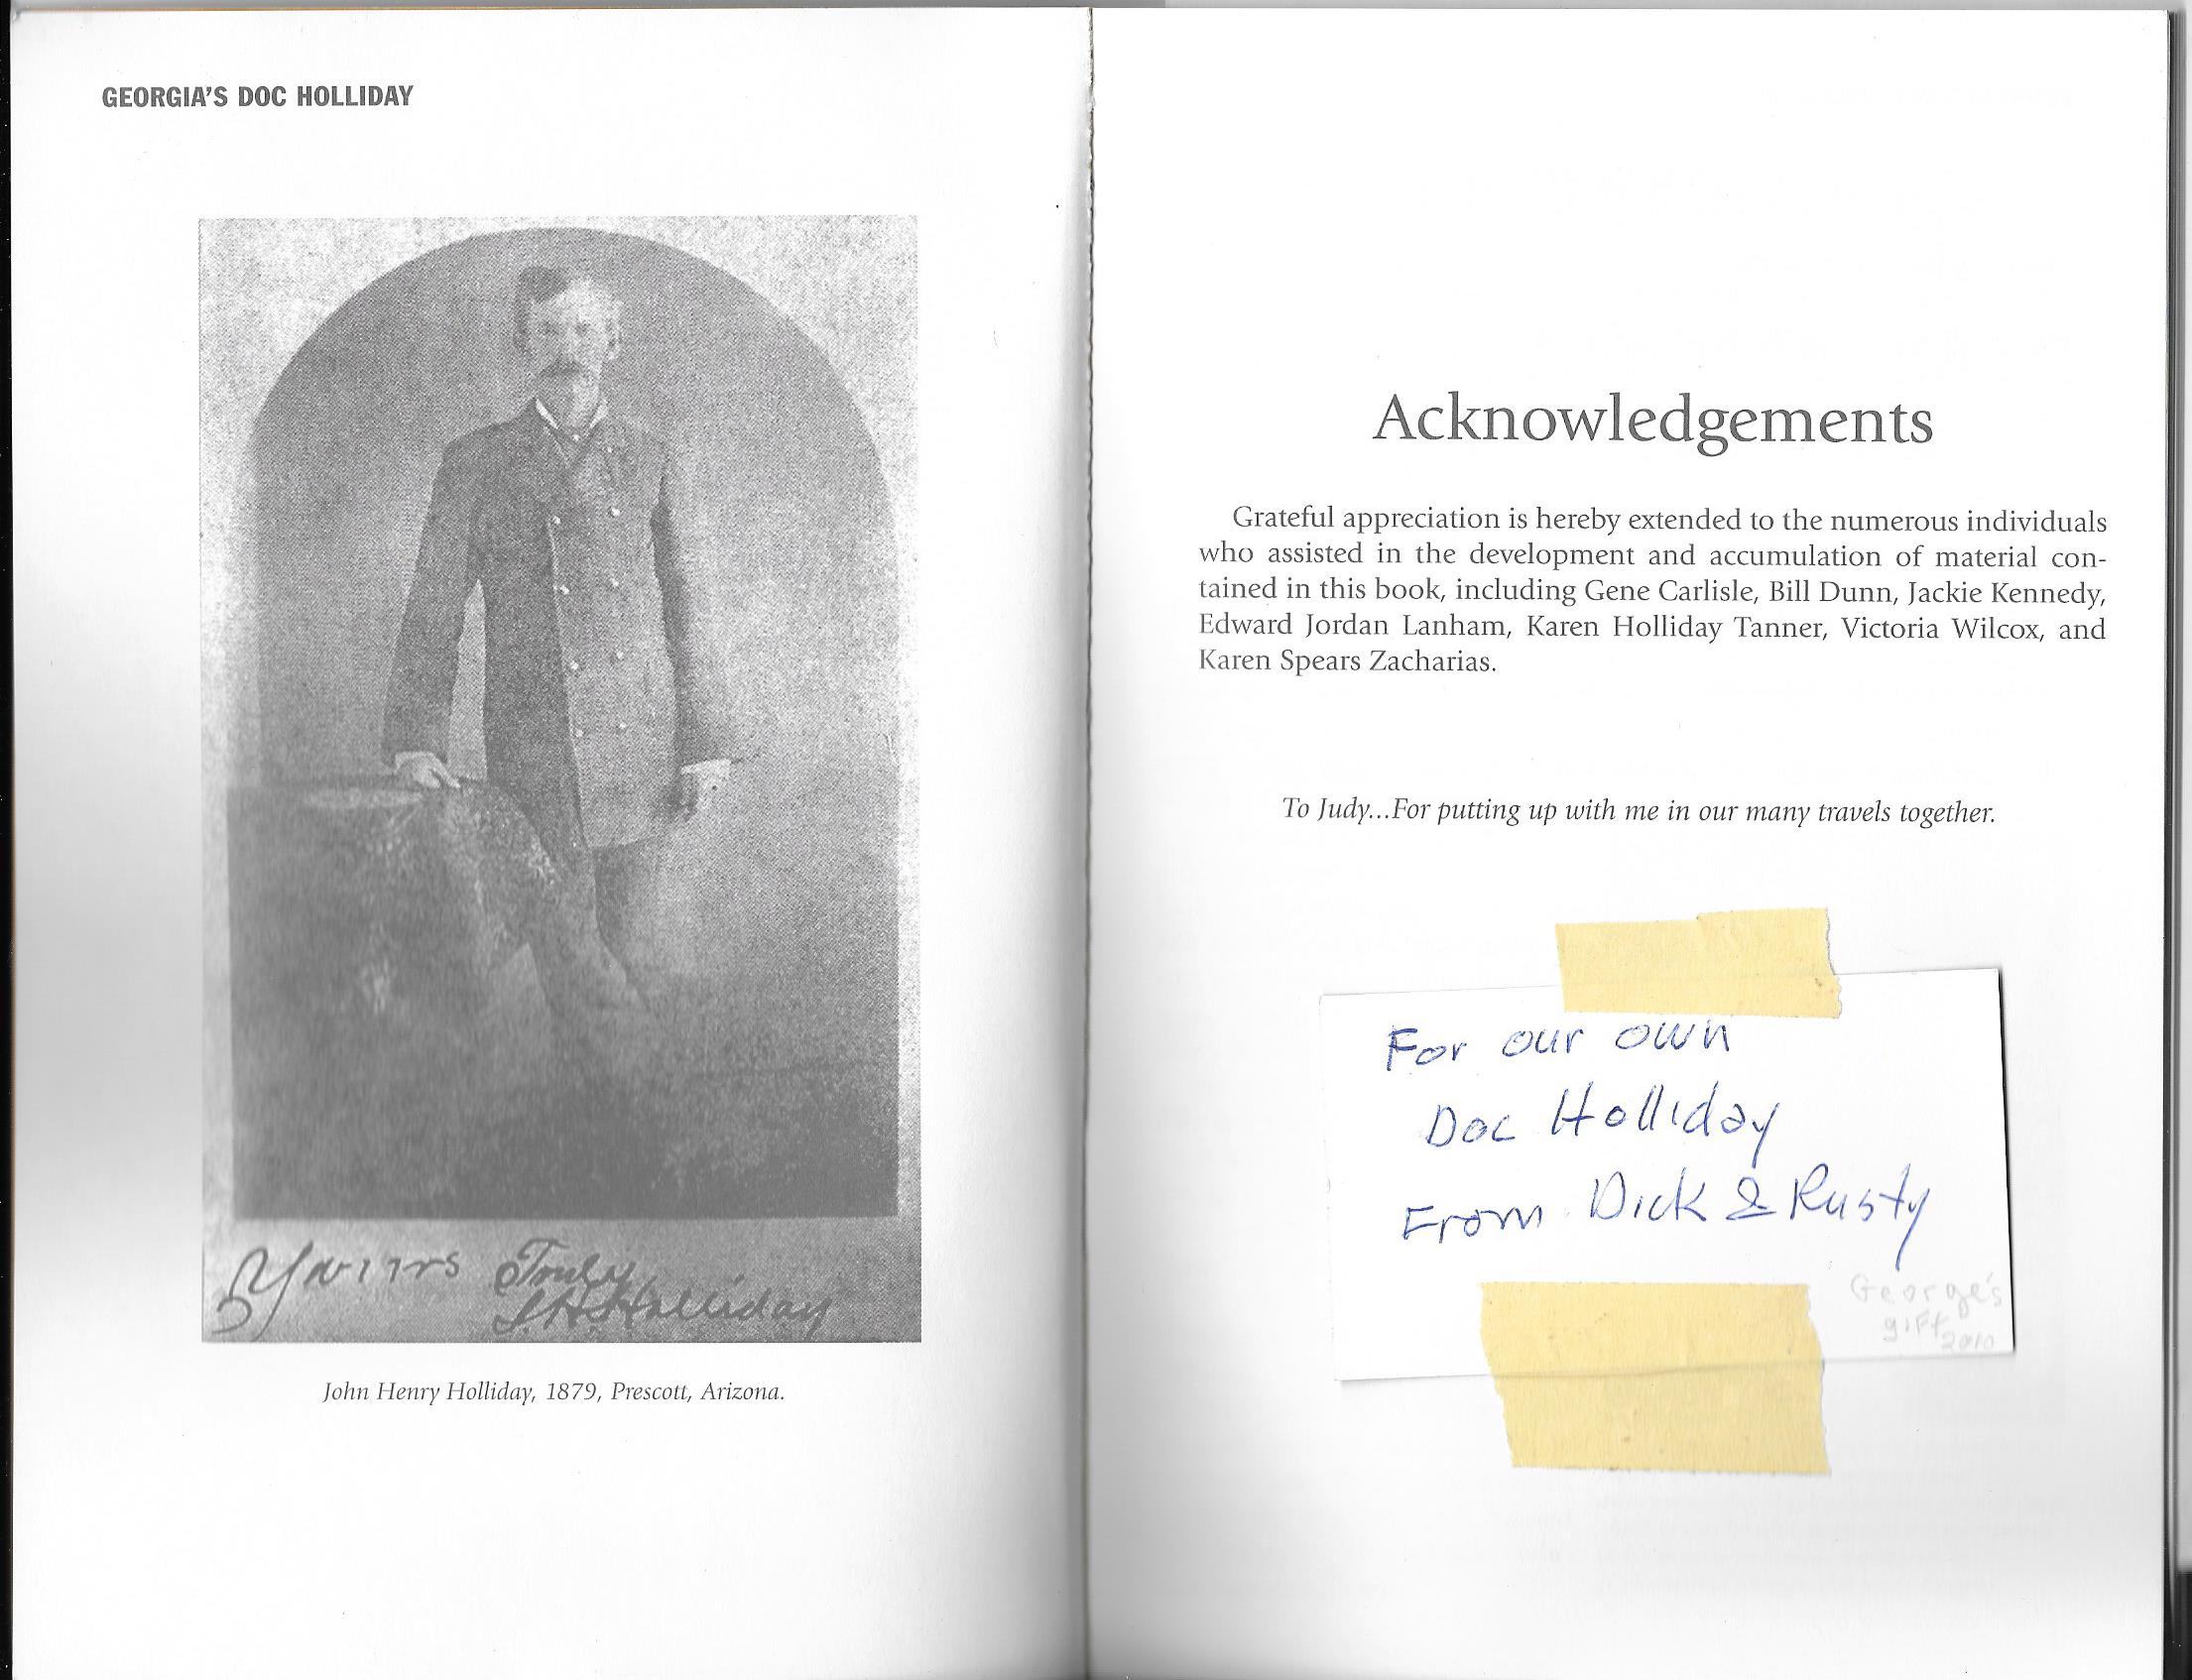 GEORGIA'S DOC HOLLIDAY
Yours Truly
J.H. Holliday
John Henry Holliday, 1879, Prescott, Arizona.
Acknowledgements
Grateful appreciation is hereby extended to the numerous individuals
who assisted in the development and accumulation of material con-
tained in this book, including Gene Carlisle, Bill Dunn, Jackie Kennedy,
Edward Jordan Lanham, Karen Holliday Tanner, Victoria Wilcox, and
Karen Spears Zacharias.
To Judy...For putting up with me in our many travels together.
For our own
Doc Holliday
From Dick & Rusty
George's
gift
2010